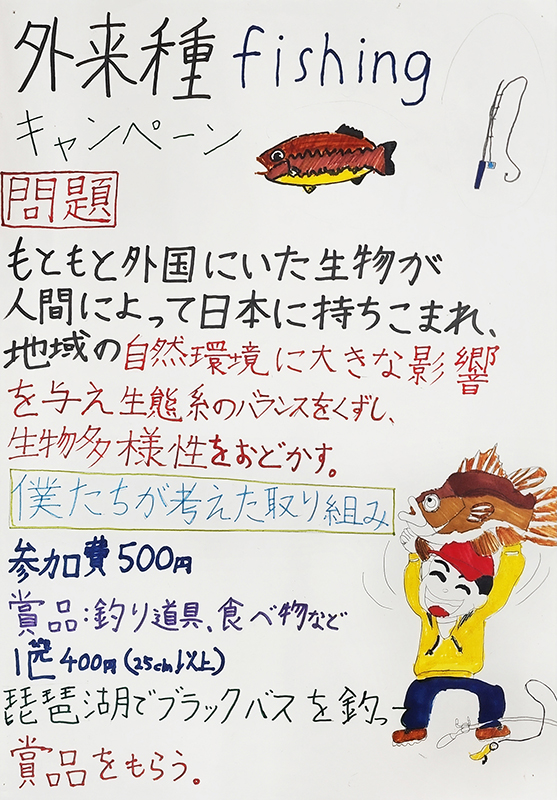 外来種 fishing
キャンペーン
問題
もともと外国にいた生物が
人間によって日本に持ちこまれ、
地域の自然環境に大きな影響
を与え生態系のバランスをくずし、
生物多様性をおどかす。
僕たちが考えた取り組み
参加費500円
賞品:釣り道具、食べ物など
1匹400円(25cm以上)
琵琶湖でブラックバスを釣って
賞品をもらう。